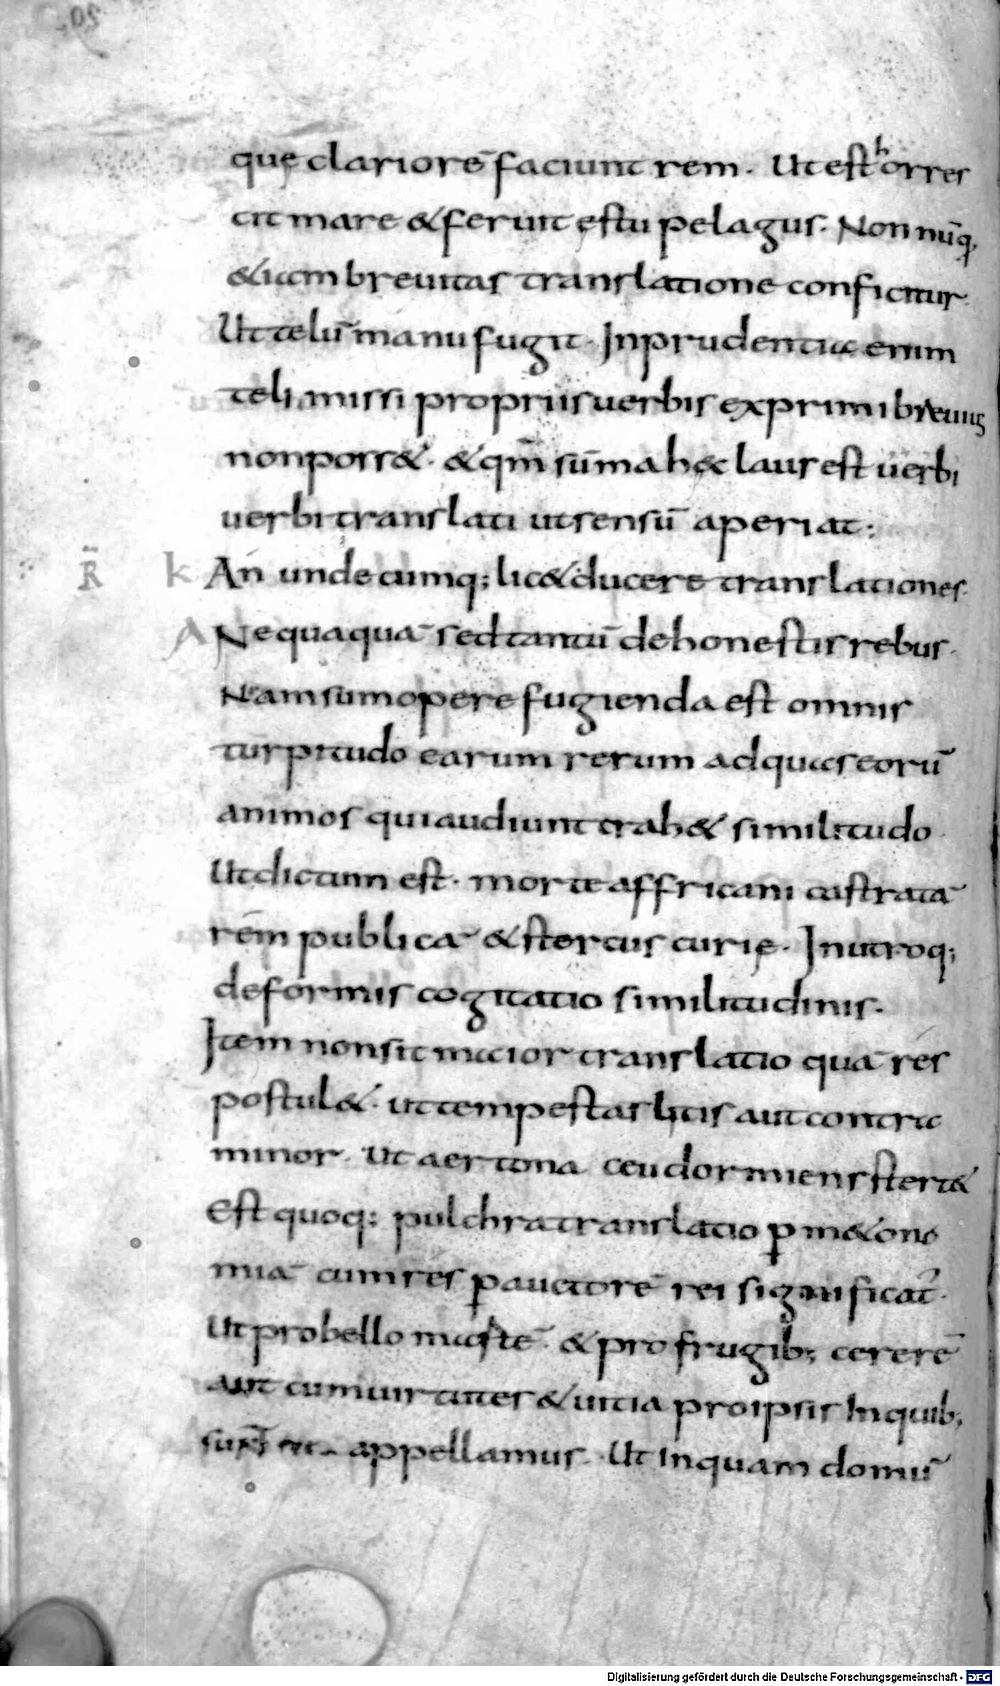 quę clariorē faciunt rem. Ut est horres
cit mare & feruit ęstu pelagus. Non nūq,
&iam breuitas translatione conficitur.
Ut telū manu fugit. Inprudentia enim
teli missi propriis uerbis exprimi breuius
non poss&. & qm̄ sūma hęc laus est uerbi
uerbi translati ut sensū aperiat:
R̄ k An unde cumq; lic& ducere translationes.
A Nequaquā sed tantū de honestis rebus.
Nam sumopere fugienda est omnis
turpitudo earum rerum ad quas eorū
animos qui audiunt trah& similitudo.
Ut dictum est. morte affricani castratā
rem publicā & stercus curię. In utroq;
deformis cogitatio similitudinis.
Item non sit maior translatio quā res
postul&. ut tempestas litis aut contra
minor. Ut aer tona ceu dormiens stert&
Est quoq; pulchra translatio ꝑ m&ono
miā cum res ꝑ auctorē rei significat̄.
Ut pro bello martē. & pro frugib; cererē
aut cum uirtutes & uitia pro ipsis In quib;
appellamus. Ut In quam domū
Digitalisierung gefördert durch die Deutsche Forschungsgemeinschaft - DFG